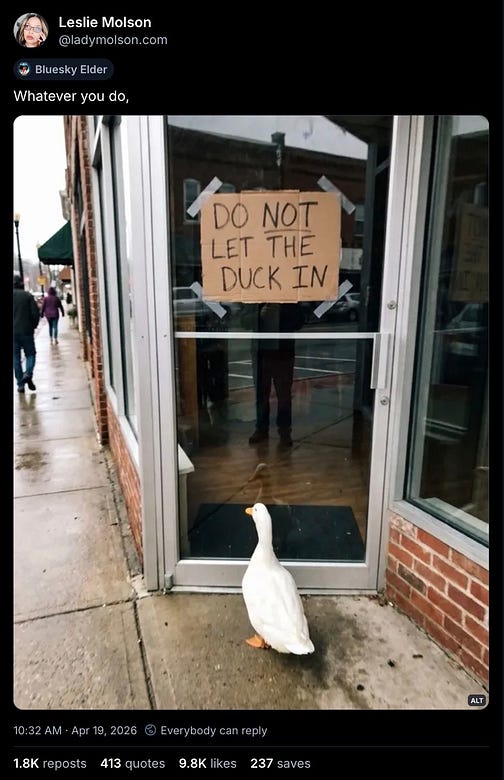 Leslie Molson
@ladymolson.com
Bluesky Elder
Whatever you do,
DO NOT
LET THE
DUCK IN
ALT
10:32 AM · Apr 19, 2026 Everybody can reply
1.8K reposts 413 quotes 9.8K likes 237 saves